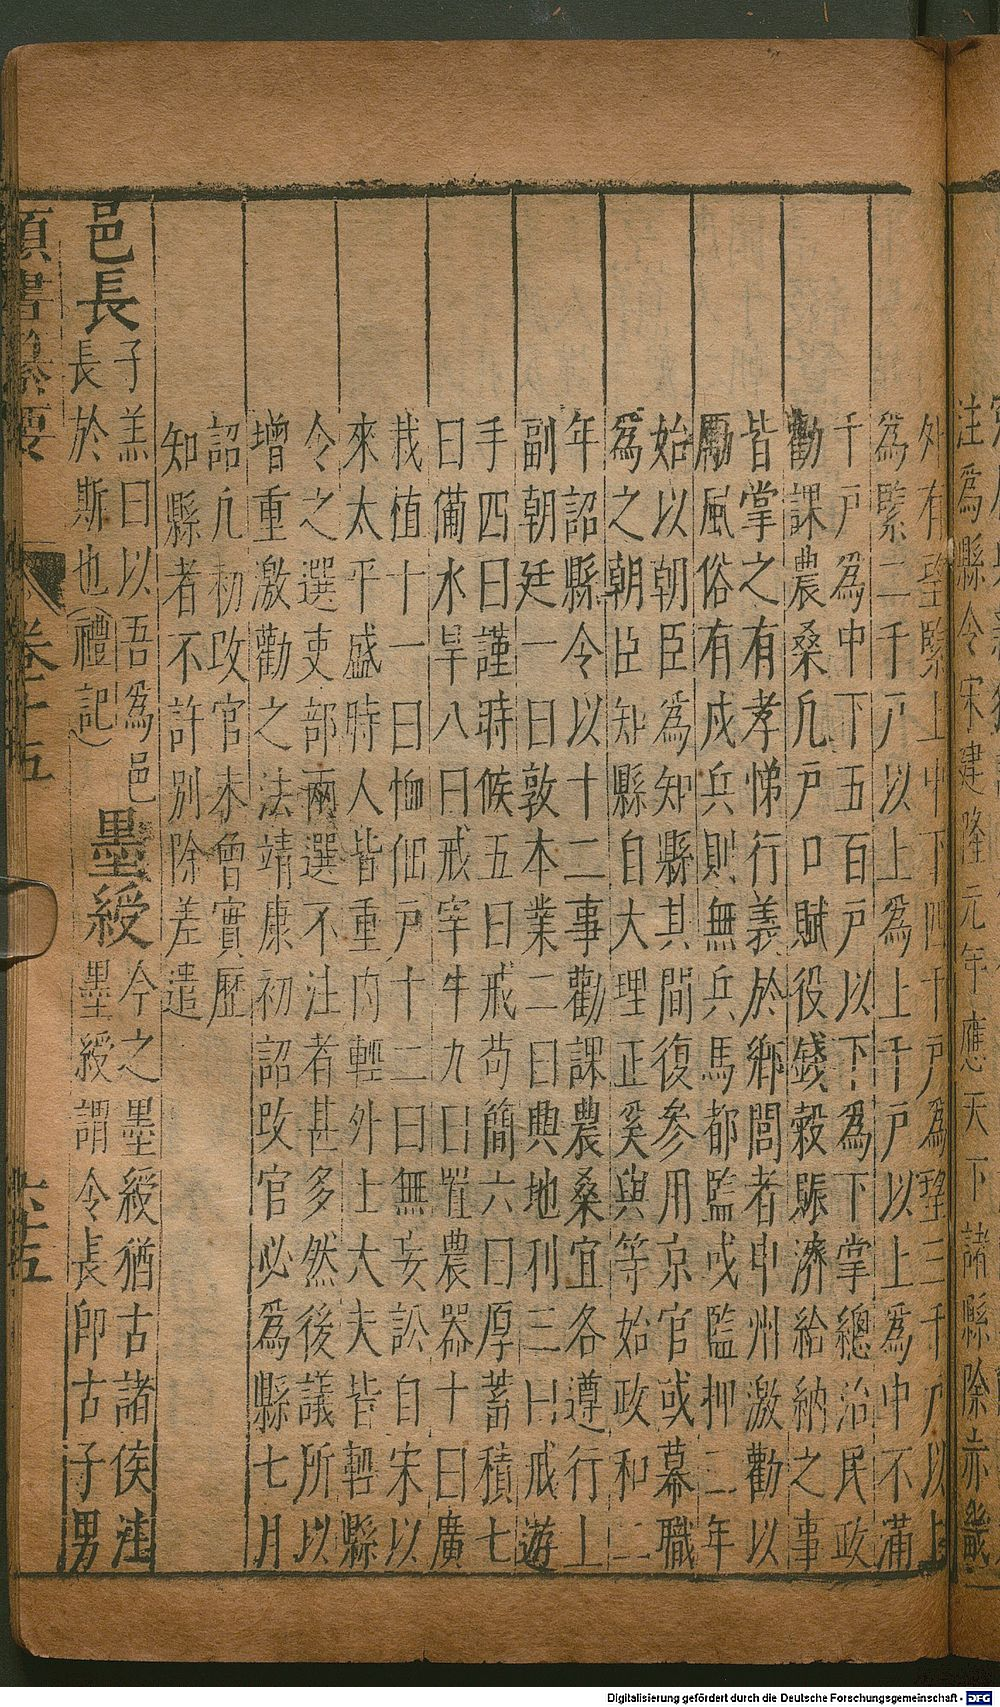 注爲縣令宋建隆元年應天下諸縣除赤畿
外有望緊上中下四千戸爲望三千戸以上
爲緊二千戸以上爲上千戸以上爲中不滿
千戸爲中下五百戸以下爲下掌總治民政
勸課農桑凡戸口賦役錢穀賑濟給納之事
皆掌之有孝悌行義於鄉閭者申州激勸以
勵風俗有戍兵則無兵馬都監或監押二年
始以朝臣爲知縣其間復參用京官或幕職
爲之朝臣知縣自大理正奚與等始政和二
年詔縣令以十二事勸課農桑宜各遵行上
副朝廷一曰敦本業二曰興地利三曰戒遊
手四曰謹時候五曰戒苟簡六曰厚蓄積七
曰備水旱八曰戒宰牛九曰置農器十曰廣
栽植十一曰恤佃戸十二曰無妄訟自宋以
來太平盛時人皆重内輕外士大夫皆暫縣
令之選吏部兩選不注者甚多然後議所以
增重激勸之法靖康初詔改官必爲縣七月
詔凡初改官未曾實歷
知縣者不許別除差遣
邑長 子羔曰以吾爲邑
長於斯也(禮記) 墨綬 今之墨綬猶古諸侯注
墨綬謂令長卽古子男
類書纂要 卷十五 六十五
Digitalisierung gefördert durch die Deutsche Forschungsgemeinschaft - DFG